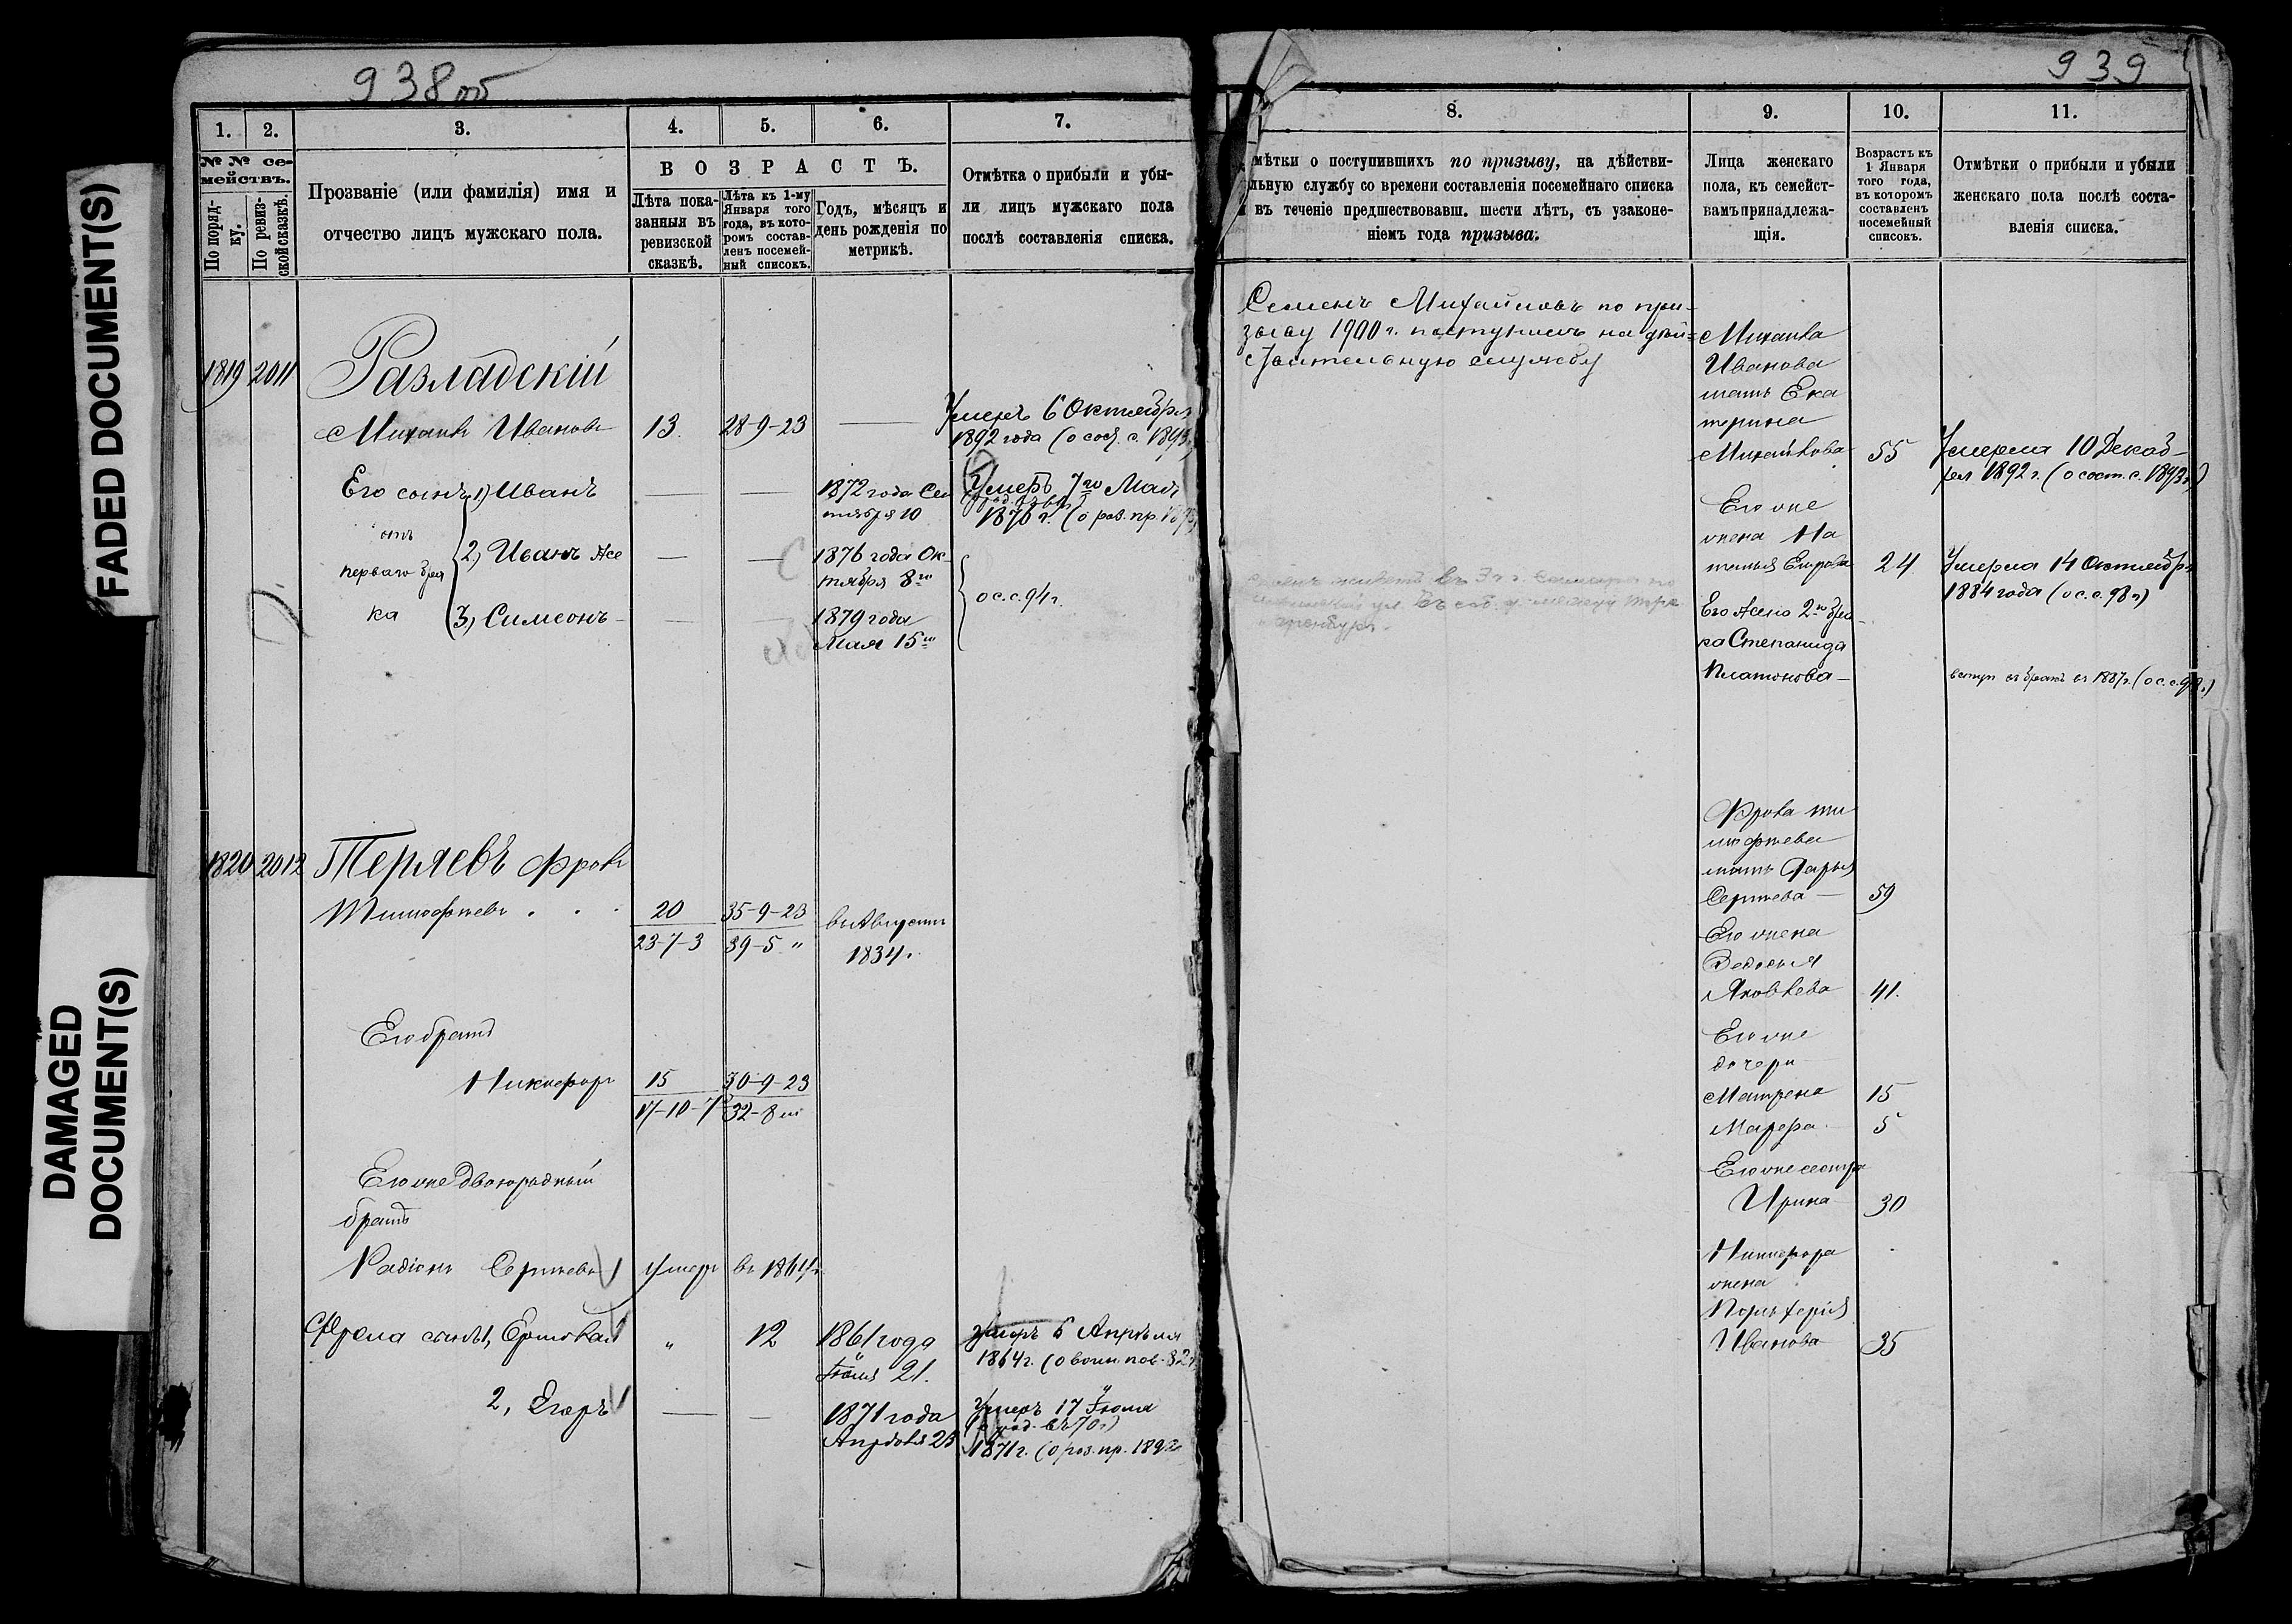 FADED DOCUMENT(S)
DAMAGED
DOCUMENT(S)
938 об
1.
2.
3.
4.
5.
6.
7.
№ № се-
мействъ.
По поряд-
ку.
По ревиз-
ской сказкѣ.
Прозваніе (или фамилія) имя и
отчество лицъ мужскаго пола.
ВОЗРАСТЪ.
Лѣта пока-
занныя въ
ревизской
сказкѣ.
Лѣта къ 1-му
Января того
года, въ кото-
ромъ состав-
ленъ посемей-
ный списокъ.
Годъ, мѣсяцъ и
день рожденія по
метрикѣ.
Отмѣтка о прибыли и убы-
ли лицъ мужскаго пола
послѣ составленія списка.
1819 2011
Разладскій
Михаилъ Ивановъ 13. 28-9-23
Умеръ 6 Октября
1892 года (о сост. с. 1893
Его сынъ 1) Иванъ
1872 года Сен
тября 10
Умеръ 7го Мая
1876 г. (о рев. пр.
отъ
перваго бра
ка
2) Иванъ же
1876 года Ок
тября 8го
3) Симеонъ
1879 года
Мая 15го
о с. с. 94 г.
1820 2012
Теряевъ Фролъ
Тимофѣевъ 20 35-9-23
23-7-3 39-5 "
въ Августѣ
1834.
Его братъ
Никифоръ 15 30-9-23
17-10-7 32-8
Его же двоюродный
братъ
Радіонъ Сергѣевъ умеръ въ 1864 г.
Фрола сынъ 1, Ермолай " 12
1861 года
Іюля 21.
Умеръ 6 Апрѣля
1864 г. (о воин. пов. 82
2, Егоръ
1871 года
Апрѣля 23
Умеръ 17 Іюля
1871 г. (о рев. пр. 1892
939
8.
9.
10.
11.
мѣтки о поступившихъ по призыву, на дѣйстви-
льную службу со времени составленія посемейнаго списка
въ теченіе предшествовавш. шести лѣтъ, съ узаконе-
ніемъ года призыва.
Лица женскаго
пола, къ семейст-
вамъ принадлежа-
щія.
Возрастъ къ
1 Января
того года,
въ которомъ
составленъ
посемейный
списокъ.
Отмѣтки о прибыли и убыли
женскаго пола послѣ соста-
вленія списка.
Семенъ Михайловъ по при-
зыву 1900 г. поступилъ на дѣй-
ствительную службу
Михаила
Иванова
мать Ека
терина
Михайлова 55
Умерла 10 Декаб-
ря 1892 г. (о сост. с. 1893 г.)
Его же
жена На
талья Егорова 24
Умерла 14 Октября
1884 года (о с. с. 98 г.)
Его жена 2го бра-
ка Степанида
Платонова
вступ. въ бракъ въ 1887 г. (о с. с. 98 г.)
Фрола Ти
мофѣева
мать Дарья
Сергѣева 59
Его жена
Федосья
Яковлева 41.
Его же
дочери
Матрена 15
Марфа 5
Его же сестра
Ирина 30
Никифора
жена
Порфирія
Иванова 35